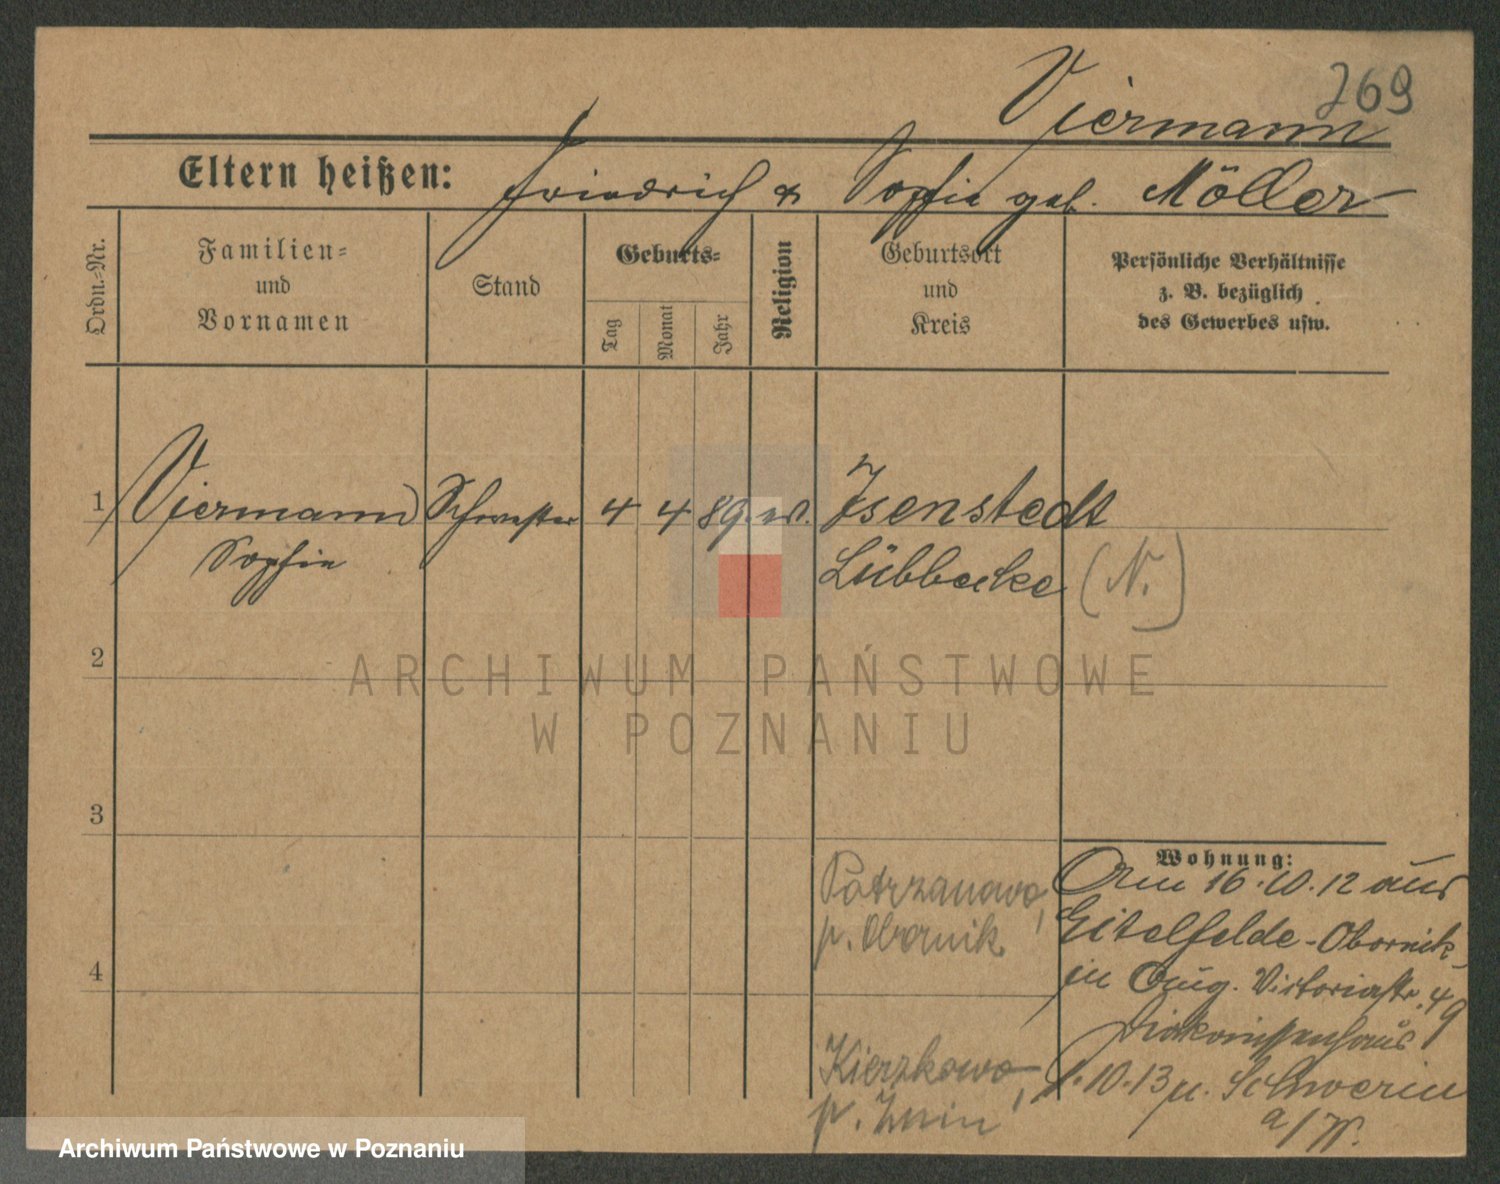 Viermann
769
Eltern heißen: Friedrich & Sophie geb. Möller
Ordn.=Nr.
Familien=
und
Vornamen
Stand
Geburts=
Tag
Monat
Jahr
Religion
Geburtsort
und
Kreis
Persönliche Verhältnisse
z. B. bezüglich
des Gewerbes usw.
1 Viermann Schwester 4 4 89 ev. Isenstedt
Sophie Lübbecke (N.)
2
ARCHIWUM PAŃSTWOWE
W POZNANIU
3
Wohnung:
Potrzanowo,
p. Obornik
4
Kierzkowo,
p. Żnin
Am 16.10.12 aus
Eitelfelde-Obornik
in Aug. Victoriastr. 49
Diakonissenhaus
1.10.13 n. Schwerin
a/W.
Archiwum Państwowe w Poznaniu